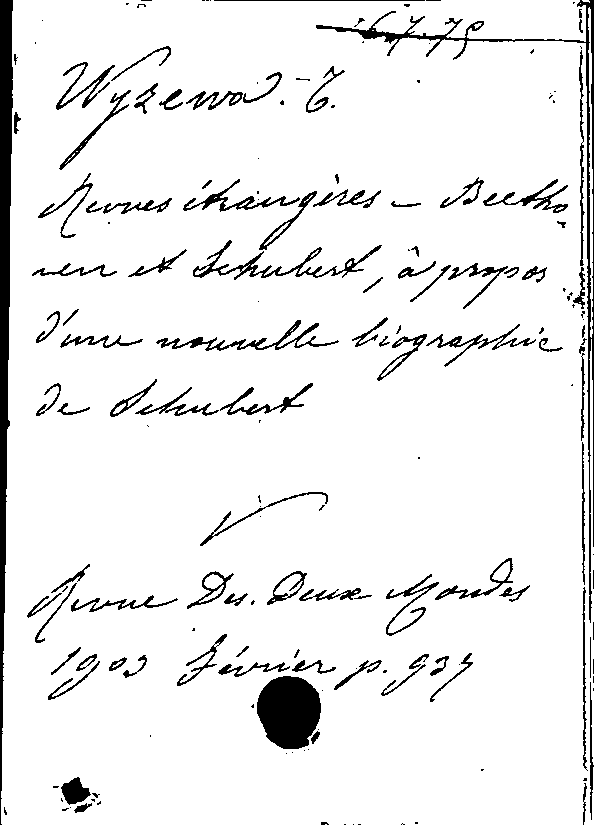 6.7.75
Wyzewa. T.
Revues étrangères – Beetho-
ven et Schubert, à propos
d'une nouvelle biographie
de Schubert
Revue Des. Deux Mondes
1903 Février p. 937